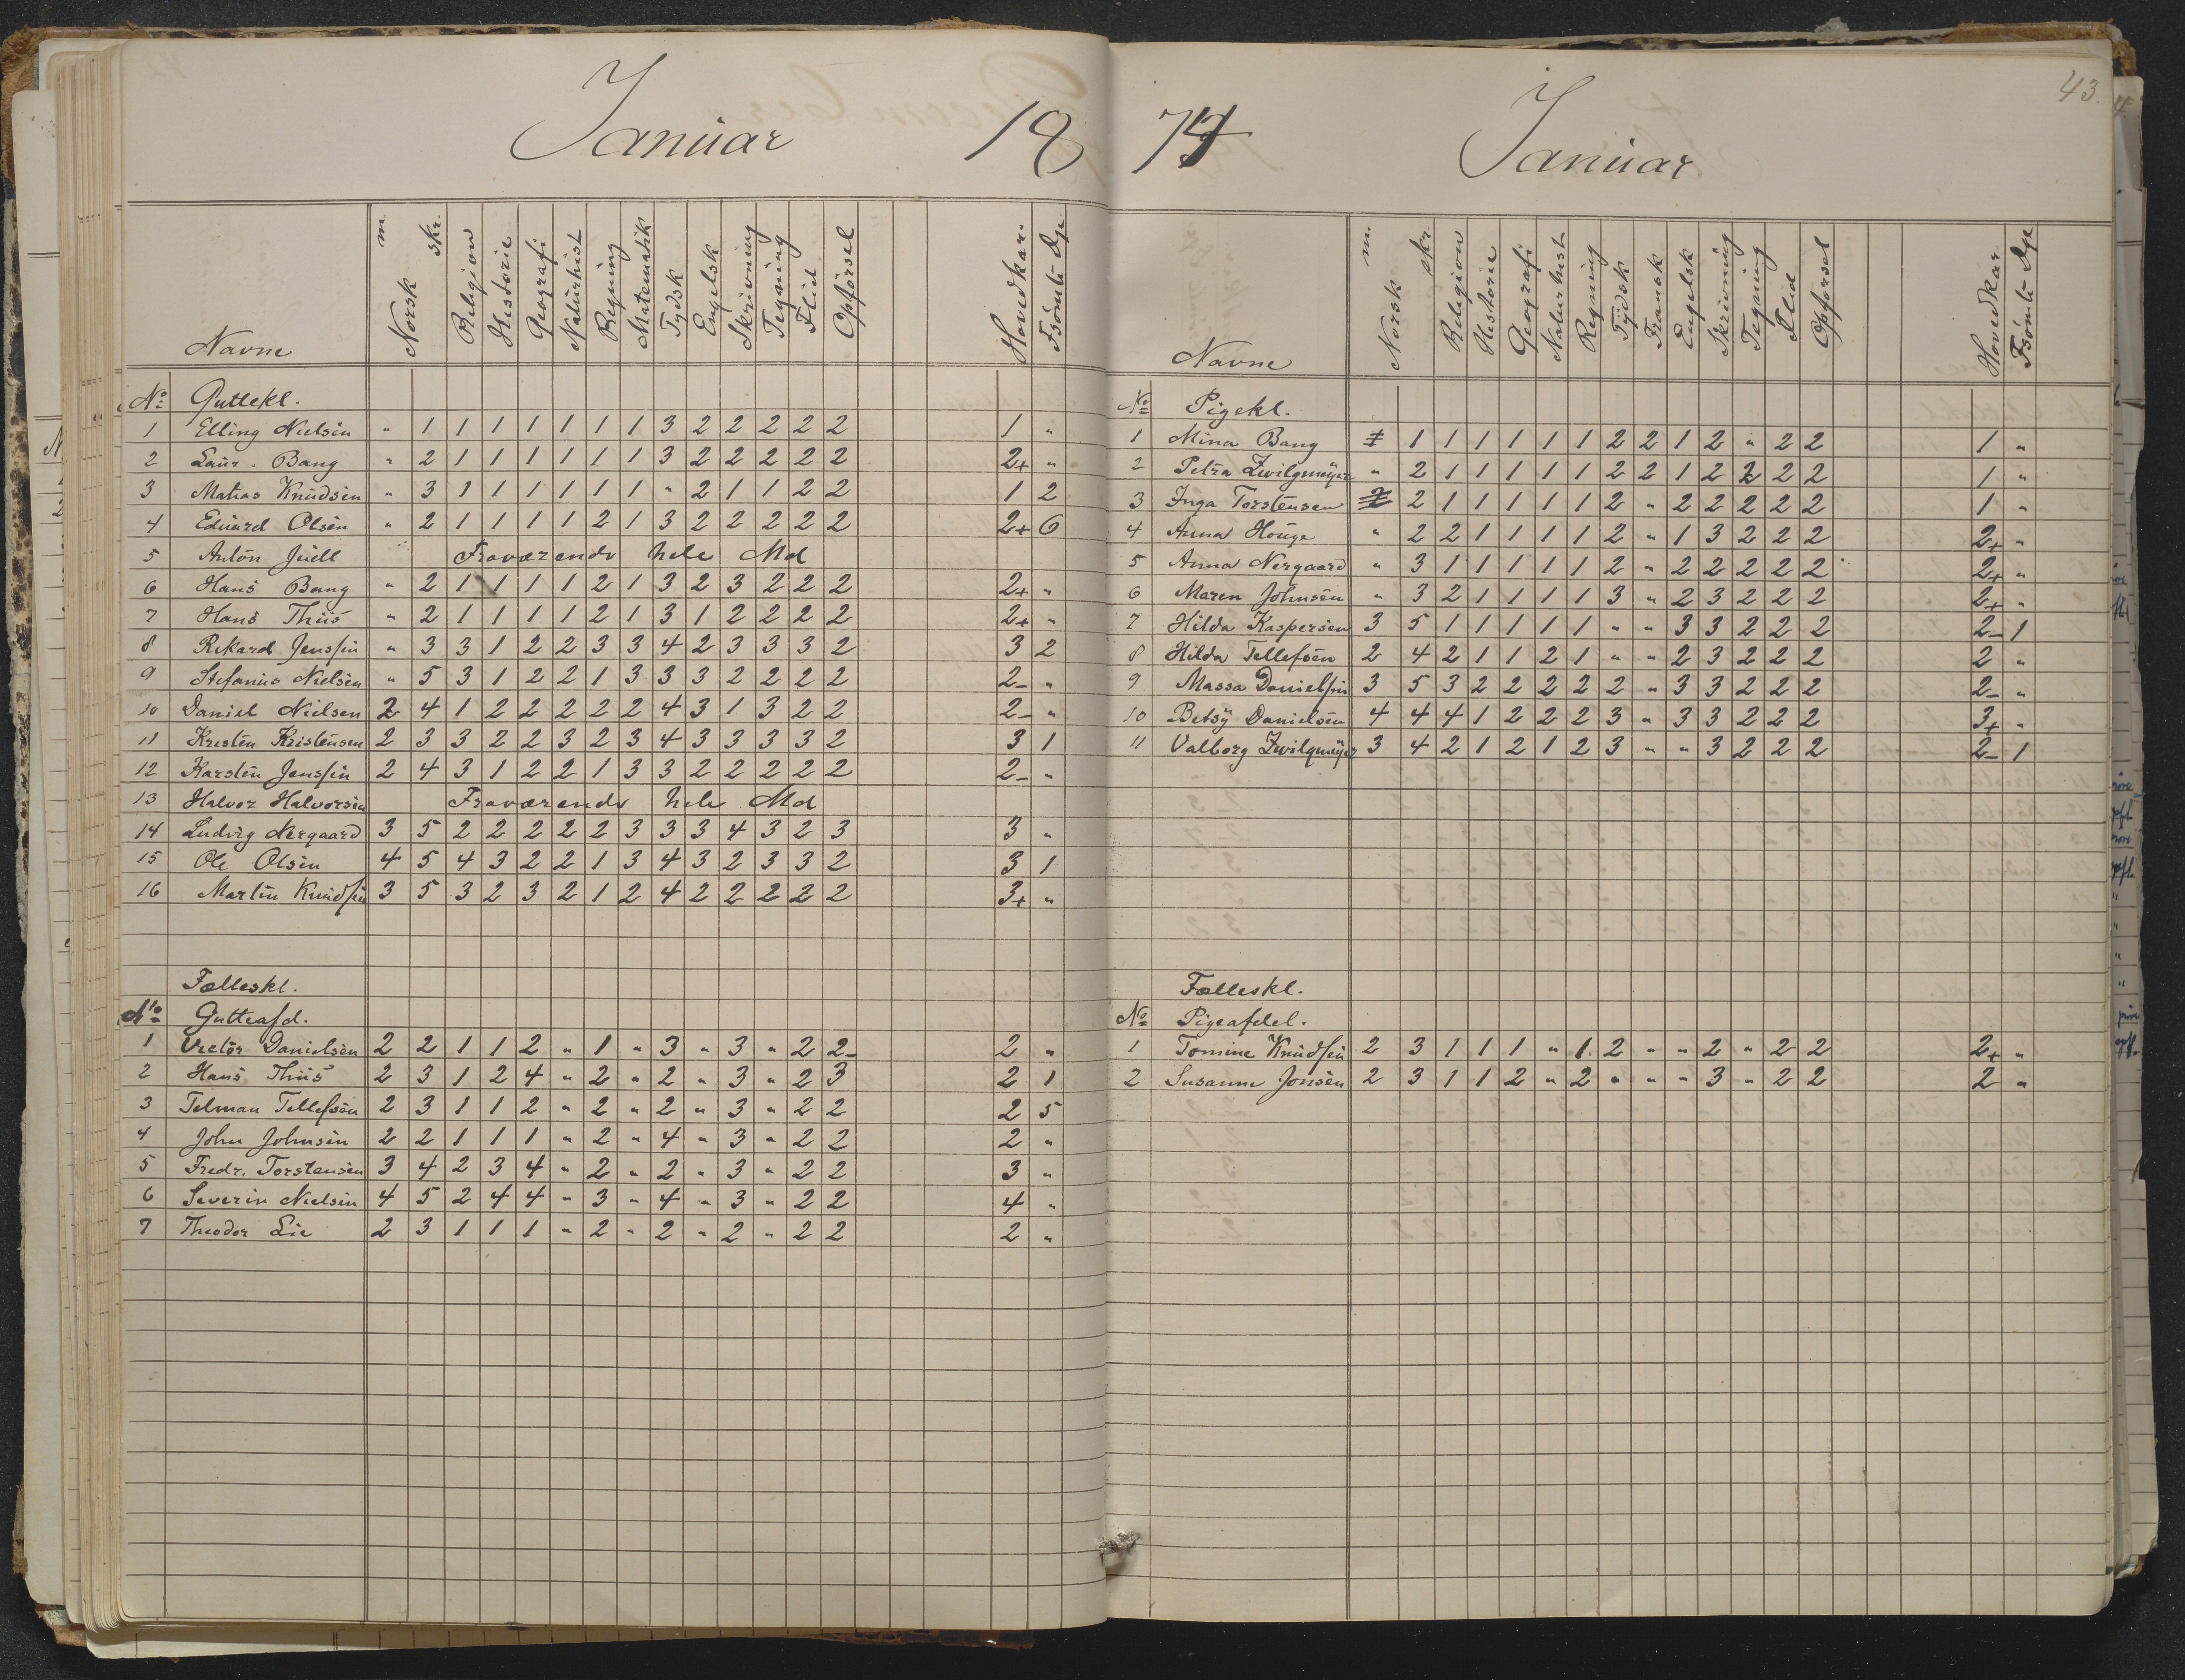 Januar 18
Navne Norsk m. skr. Religion Historie Geografi Naturhist Regning Matematik Tydsk Engelsk Skrivning Tegning Flid Opførsel Hovedkar. Fsömte Dge
No Guttekl.
1 Elling Nielsen " 1 1 1 1 1 1 1 3 2 2 2 2 2 1 "
2 Laur. Bang " 2 1 1 1 1 1 1 3 2 2 2 2 2 2+ "
3 Matias Knudsen " 3 1 1 1 1 1 1 " 2 1 1 2 2 1 2
4 Eduard Olsen " 2 1 1 1 1 2 1 3 2 2 2 2 2 2+ 6
5 Anton Juell Fraværende hele Md
6 Hans Bang " 2 1 1 1 1 2 1 3 2 3 2 2 2 2+ "
7 Hans Thiis " 2 1 1 1 1 2 1 3 1 2 2 2 2 2+ "
8 Rikard Jenssen " 3 3 1 2 2 3 3 4 2 3 3 3 2 3 2
9 Stefanus Nielsen " 5 3 1 2 2 1 3 3 3 2 2 2 2 2- "
10 Daniel Nielsen 2 4 1 2 2 2 2 2 4 3 1 3 2 2 2- "
11 Kristen Kristensen 2 3 3 2 2 3 2 3 4 3 3 3 3 2 3 1
12 Karsten Jenssen 2 4 3 1 2 2 1 3 3 2 2 2 2 2 2- "
13 Halvor Halvorsen Fraværende hele Md
14 Ludvig Nergaard 3 5 2 2 2 2 2 3 3 3 4 3 2 3 3 "
15 Ole Olsen 4 5 4 3 2 2 1 3 4 3 2 3 3 2 3 1
16 Martin Knudsen 3 5 3 2 3 2 1 2 4 2 2 2 2 2 3+ "
Fælleskl.
No Gutteafd.
1 Victor Danielsen 2 2 1 1 2 " 1 " 3 " 3 " 2 2- 2 "
2 Hans Thiis 2 3 1 2 4 " 2 " 2 " 3 " 2 3 2 1
3 Telman Tellefsen 2 3 1 1 2 " 2 " 2 " 3 " 2 2 2 5
4 John Johnsen 2 2 1 1 1 " 2 " 4 " 3 " 2 2 2 "
5 Fredr. Torstensen 3 4 2 3 4 " 2 " 2 " 3 " 2 2 3 "
6 Severin Nielsen 4 5 2 4 4 " 3 " 4 " 3 " 2 2 4 "
7 Theodor Lie 2 3 1 1 1 " 2 " 2 " 2 " 2 2 2 "
74 Januar 43
Navne Norsk m. skr. Religion Historie Geografi Naturhist Regning Tydsk Fransk Engelsk Skrivning Tegning Flid Opførsel Hovedkar. Fsömte Dge
No Pigekl.
1 Mina Bang 1 1 1 1 1 1 2 2 1 2 " 2 2 1 "
2 Petra Zwilgmeyer " 2 1 1 1 1 1 2 2 1 2 2 2 2 1 "
3 Inga Torstensen 2 1 1 1 1 1 2 " 2 2 2 2 2 1 "
4 Anna Houge " 2 2 1 1 1 1 2 " 1 3 2 2 2 2+ "
5 Anna Nergaard " 3 1 1 1 1 1 2 " 2 2 2 2 2 2+ "
6 Maren Johnsen " 3 2 1 1 1 1 3 " 2 3 2 2 2 2+ "
7 Hilda Kaspersen 3 5 1 1 1 1 1 " " 3 3 2 2 2 2- 1
8 Hilda Tellefsen 2 4 2 1 1 2 1 " " 2 3 2 2 2 2 "
9 Massa Danielsen 3 5 3 2 2 2 2 2 " 3 3 2 2 2 2- "
10 Betsy Danielsen 4 4 4 1 2 2 2 3 " 3 3 2 2 2 3+ "
11 Valborg Zwilgmeyer 3 4 2 1 2 1 2 3 " " 3 2 2 2 2- 1
Fælleskl.
No Pigeafdel.
1 Tomine Knudsen 2 3 1 1 1 " 1 2 " " 2 " 2 2 2+ "
2 Susanne Jonsen 2 3 1 1 2 " 2 " " " 3 " 2 2 2 "